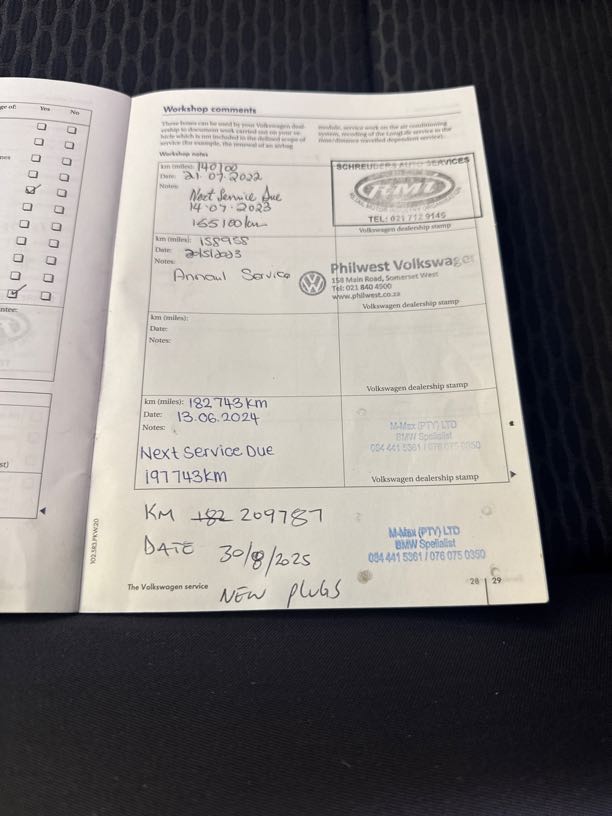 ge of:
Yes
No
nes
ntee:
st)
Workshop comments
These boxes can be used by your Volkswagen deal-
ership to document work carried out on your ve-
hicle which is not included in the defined scope of
service (for example, the renewal of an airbag
module, service work on the air conditioning
system, recoding of the LongLife service to the
time/distance travelled dependent service).
Workshop notes
km (miles): 140100
Date: 21.07.2022
Notes:
Next Service Due
14.07.2023
155100km
SCHREUDERS AUTO SERVICES
RMI
TEL: 021 712 9145
Volkswagen dealership stamp
km (miles): 158958
Date: 2/5/2023
Notes:
Annaul Service
Philwest Volkswagen
158 Main Road, Somerset West
Tel: 021 840 4500
www.philwest.co.za
Volkswagen dealership stamp
km (miles):
Date:
Notes:
Volkswagen dealership stamp
km (miles): 182743km
Date: 13.06.2024
Notes:
Next Service Due
197743km
M-Max (PTY) LTD
BMW Spelialist
084 441 5361 / 076 075 0350
Volkswagen dealership stamp
KM 182 209787
DATE 30/8/2025
NEW PLUGS
M-Max (PTY) LTD
BMW Spelialist
084 441 5361 / 076 075 0350
102.5R3.PKW.20
The Volkswagen service
28 | 29